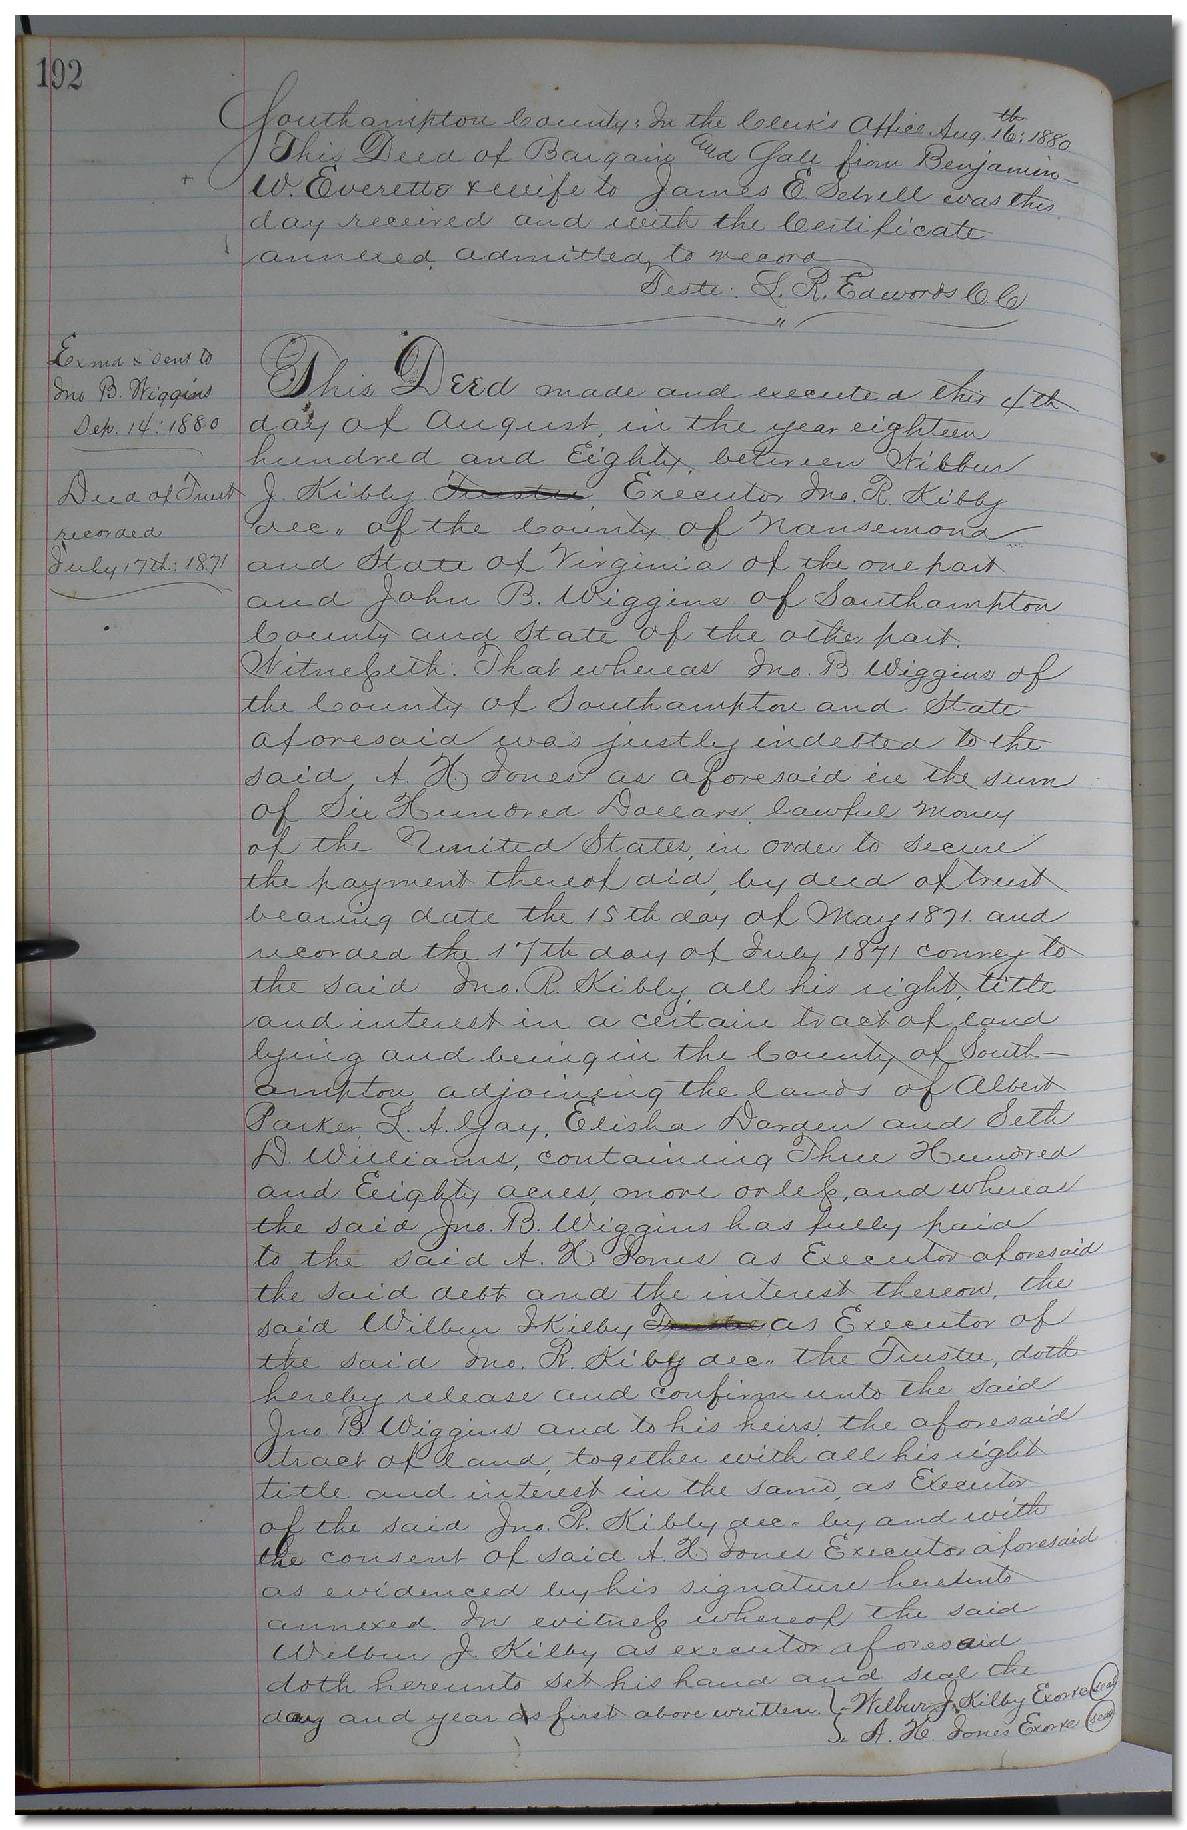 192
Southampton County: In the Clerk's Office Aug. 16th: 1880
This Deed of Bargain and Sale from Benjamin
W. Everetto & wife to James E. Sebrell was this
day received and with the Certificate
annexed, admitted to record
Teste: L. R. Edwards C.C
Exmd & sent to
Jno B. Wiggins
Sep. 14: 1880
Deed of Trust
recorded
July 17th: 1871
This Deed made and executed this 4th
day of August, in the year eighteen
hundred and Eighty, between Wilbur
J. Kilby Trustee, Executor Jno. R. Kilby
dec.. of the County of Nansemond
and State of Virginia of the one part
and John B. Wiggins of Southampton
County and State of the other part.
Witnesseth: That whereas Jno. B Wiggins of
the County of Southampton and State
aforesaid was justly indebted to the
said A. H Jones as aforesaid in the sum
of Six Hundred Dollars, lawful money
of the United States, in order to secure
the payment thereof did, by deed of trust
bearing date the 15th day of May 1871. and
recorded the 17th day of July 1871 convey to
the said Jno. R. Kilby, all his right, title
and interest in a certain tract of land
lying and being in the County of South-
ampton adjoining the lands of Albert
Parker, L. A. Gay, Elisha Darden and Seth
D. Williams, containing Three Hundred
and Eighty acres, more or less, and whereas
the said Jno. B. Wiggins has fully paid
to the said A. H Jones as Executor aforesaid
the said debt and the interest thereon, the
said Wilbur J Kilby Trustee as Executor of
the said Jno. R. Kilby dec.. the Trustee, doth
hereby release and confirm unto the said
Jno B. Wiggins and to his heirs, the aforesaid
tract of land, together with all his right
title and interest in the same, as Executor
of the said Jno. R. Kilby dec.. by and with
the consent of said A. H Jones Executor aforesaid
as evidenced by his signature hereunto
annexed. In witness whereof the said
Wilbur J. Kilby as executor aforesaid
doth hereunto set his hand and seal the
day and year as first above written } Wilbur J. Kilby Exor &c (seal)
}. A. H Jones Exor &c (seal)